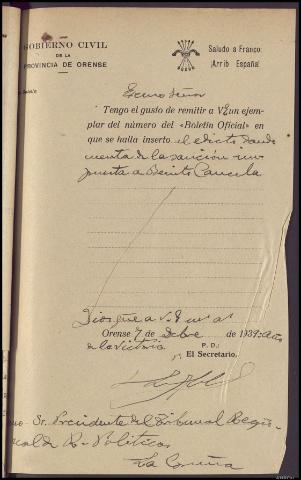 GOBIERNO CIVIL
DE LA
PROVINCIA DE ORENSE
Saludo a Franco:
¡Arrib España!
Excmo Señor
Tengo el gusto de remitir a VE un ejem-
plar del número del «Boletín Oficial» en
que se halla inserto el edicto dando
cuenta de la sanción im-
puesta a Benito Cancela
Dios gue a V.E. m. a.
Orense 7 de Dbre de 1939. Año
de la Victoria
P. D.:
El Secretario,
mo Sr. Presidente del Tribunal Regio-
nal de R. Políticas
La Coruña